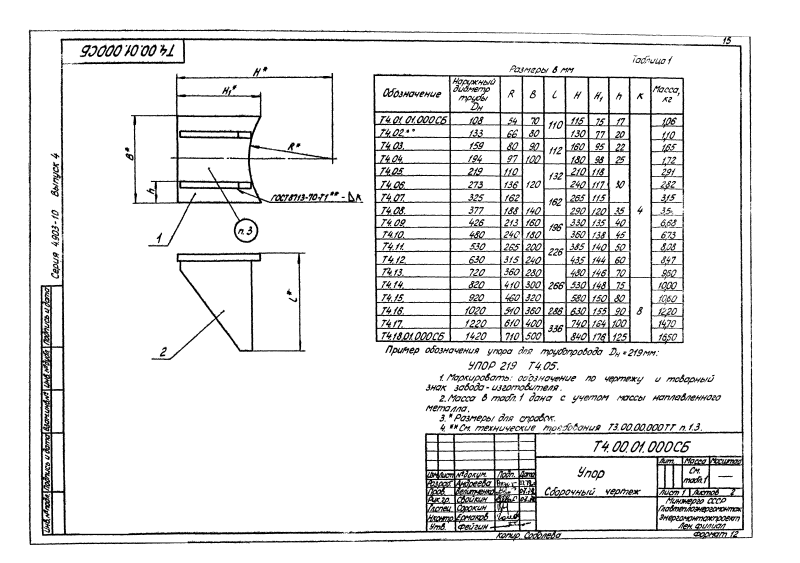 15
Т4.00.01.000СБ
Серия 4.903-10 Выпуск 4
H*
H₁*
B*
h
R*
ГОСТ 8713-70-Т1** - ⊿К
п.3
1
L*
2
Таблица 1
Размеры в мм
Обозначение | Наружный диаметр трубы Dн | R | B | L | H | H₁ | h | К | Масса, кг
Т4.01.01.000СБ | 108 | 54 | 70 | 110 | 115 | 75 | 17 | 4 | 1,06
Т4.02. | 133 | 66 | 80 | 130 | 77 | 20 | 1,10
Т4.03. | 159 | 80 | 90 | 112 | 160 | 95 | 22 | 1,65
Т4.04. | 194 | 97 | 100 | 180 | 98 | 25 | 1,72
Т4.05. | 219 | 110 | 120 | 132 | 210 | 118 | 30 | 2,91
Т4.06. | 273 | 136 | 240 | 117 | 2,82
Т4.07. | 325 | 162 | 162 | 265 | 115 | 3,15
Т4.08. | 377 | 188 | 140 | 290 | 120 | 35 | 3,5
Т4.09. | 426 | 213 | 160 | 196 | 330 | 135 | 40 | 6,63
Т4.10. | 480 | 240 | 180 | 360 | 138 | 45 | 6,73
Т4.11. | 530 | 265 | 200 | 226 | 385 | 140 | 50 | 8,08
Т4.12. | 630 | 315 | 240 | 435 | 144 | 60 | 8,47
Т4.13. | 720 | 360 | 280 | 266 | 480 | 146 | 70 | 8 | 9,60
Т4.14. | 820 | 410 | 300 | 530 | 148 | 75 | 10,00
Т4.15. | 920 | 460 | 320 | 580 | 150 | 80 | 10,60
Т4.16. | 1020 | 510 | 360 | 286 | 630 | 155 | 90 | 12,20
Т4.17. | 1220 | 610 | 400 | 336 | 740 | 164 | 100 | 14,70
Т4.18.01.000СБ | 1420 | 710 | 500 | 840 | 176 | 125 | 16,50
Пример обозначения упора для трубопровода Dн=219мм:
УПОР 219 Т4.05.
1. Маркировать: обозначение по чертежу и товарный
знак завода-изготовителя.
2. Масса в табл.1 дана с учетом массы наплавленного
металла.
3. * Размеры для справок.
4. **См. технические требования Т3.00.00.000ТТ п.1.3.
Т4.00.01.000СБ
Упор
Сборочный чертеж
Лит. Масса Масштаб
См. табл.1 —
Лист 1 Листов 2
Минэнерго СССР
Главтеплоэнергомонтаж
Энергомонтажпроект
Лен. филиал
Изм Лист № докум. Подп. Дата
Разраб. Андреева
Пров.
Рук.гр. Свойкин
Гл.спец. Сорокин
Н.контр. Ермаков
Утв. Фейгин
Копир. Соболева
Формат 12
Инв.№подл. Подпись и дата Взам.инв.№ Инв.№дубл. Подпись и дата